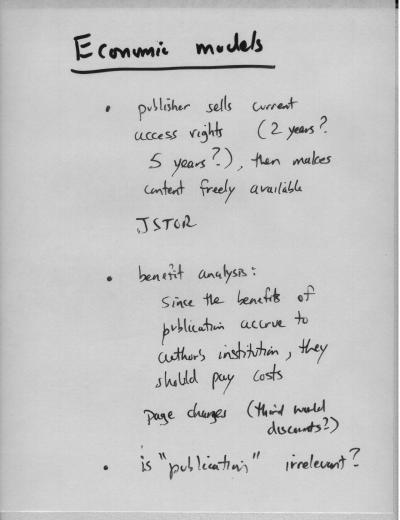 Economic models
• publisher sells current
access rights (2 years?
5 years?), then makes
content freely available
JSTOR
• benefit analysis:
Since the benefits of
publication accrue to
author's institution, they
should pay costs
page charges (third world
discounts?)
• is "publication" irrelevant?